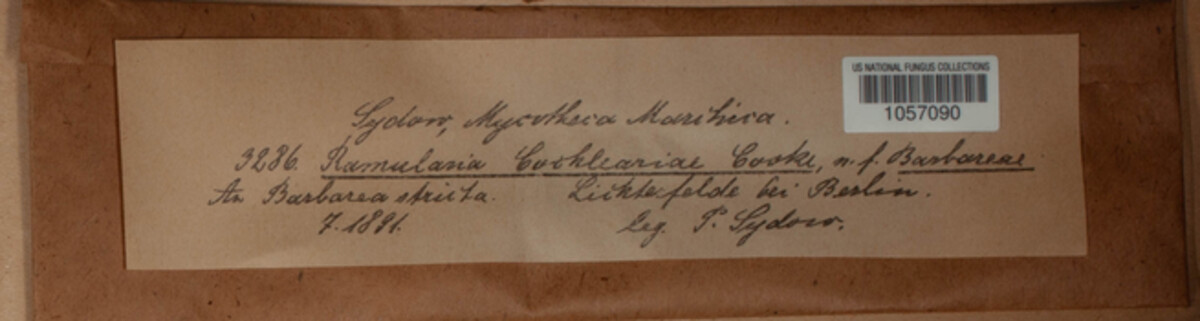 US NATIONAL FUNGUS COLLECTIONS
1057090
Sydow, Mycotheca Marchica.
3286. Ramularia Cochleariae Cooke, n. f. Barbareae
An Barbarea stricta. Lichterfelde bei Berlin.
7. 1891. leg. P. Sydow.